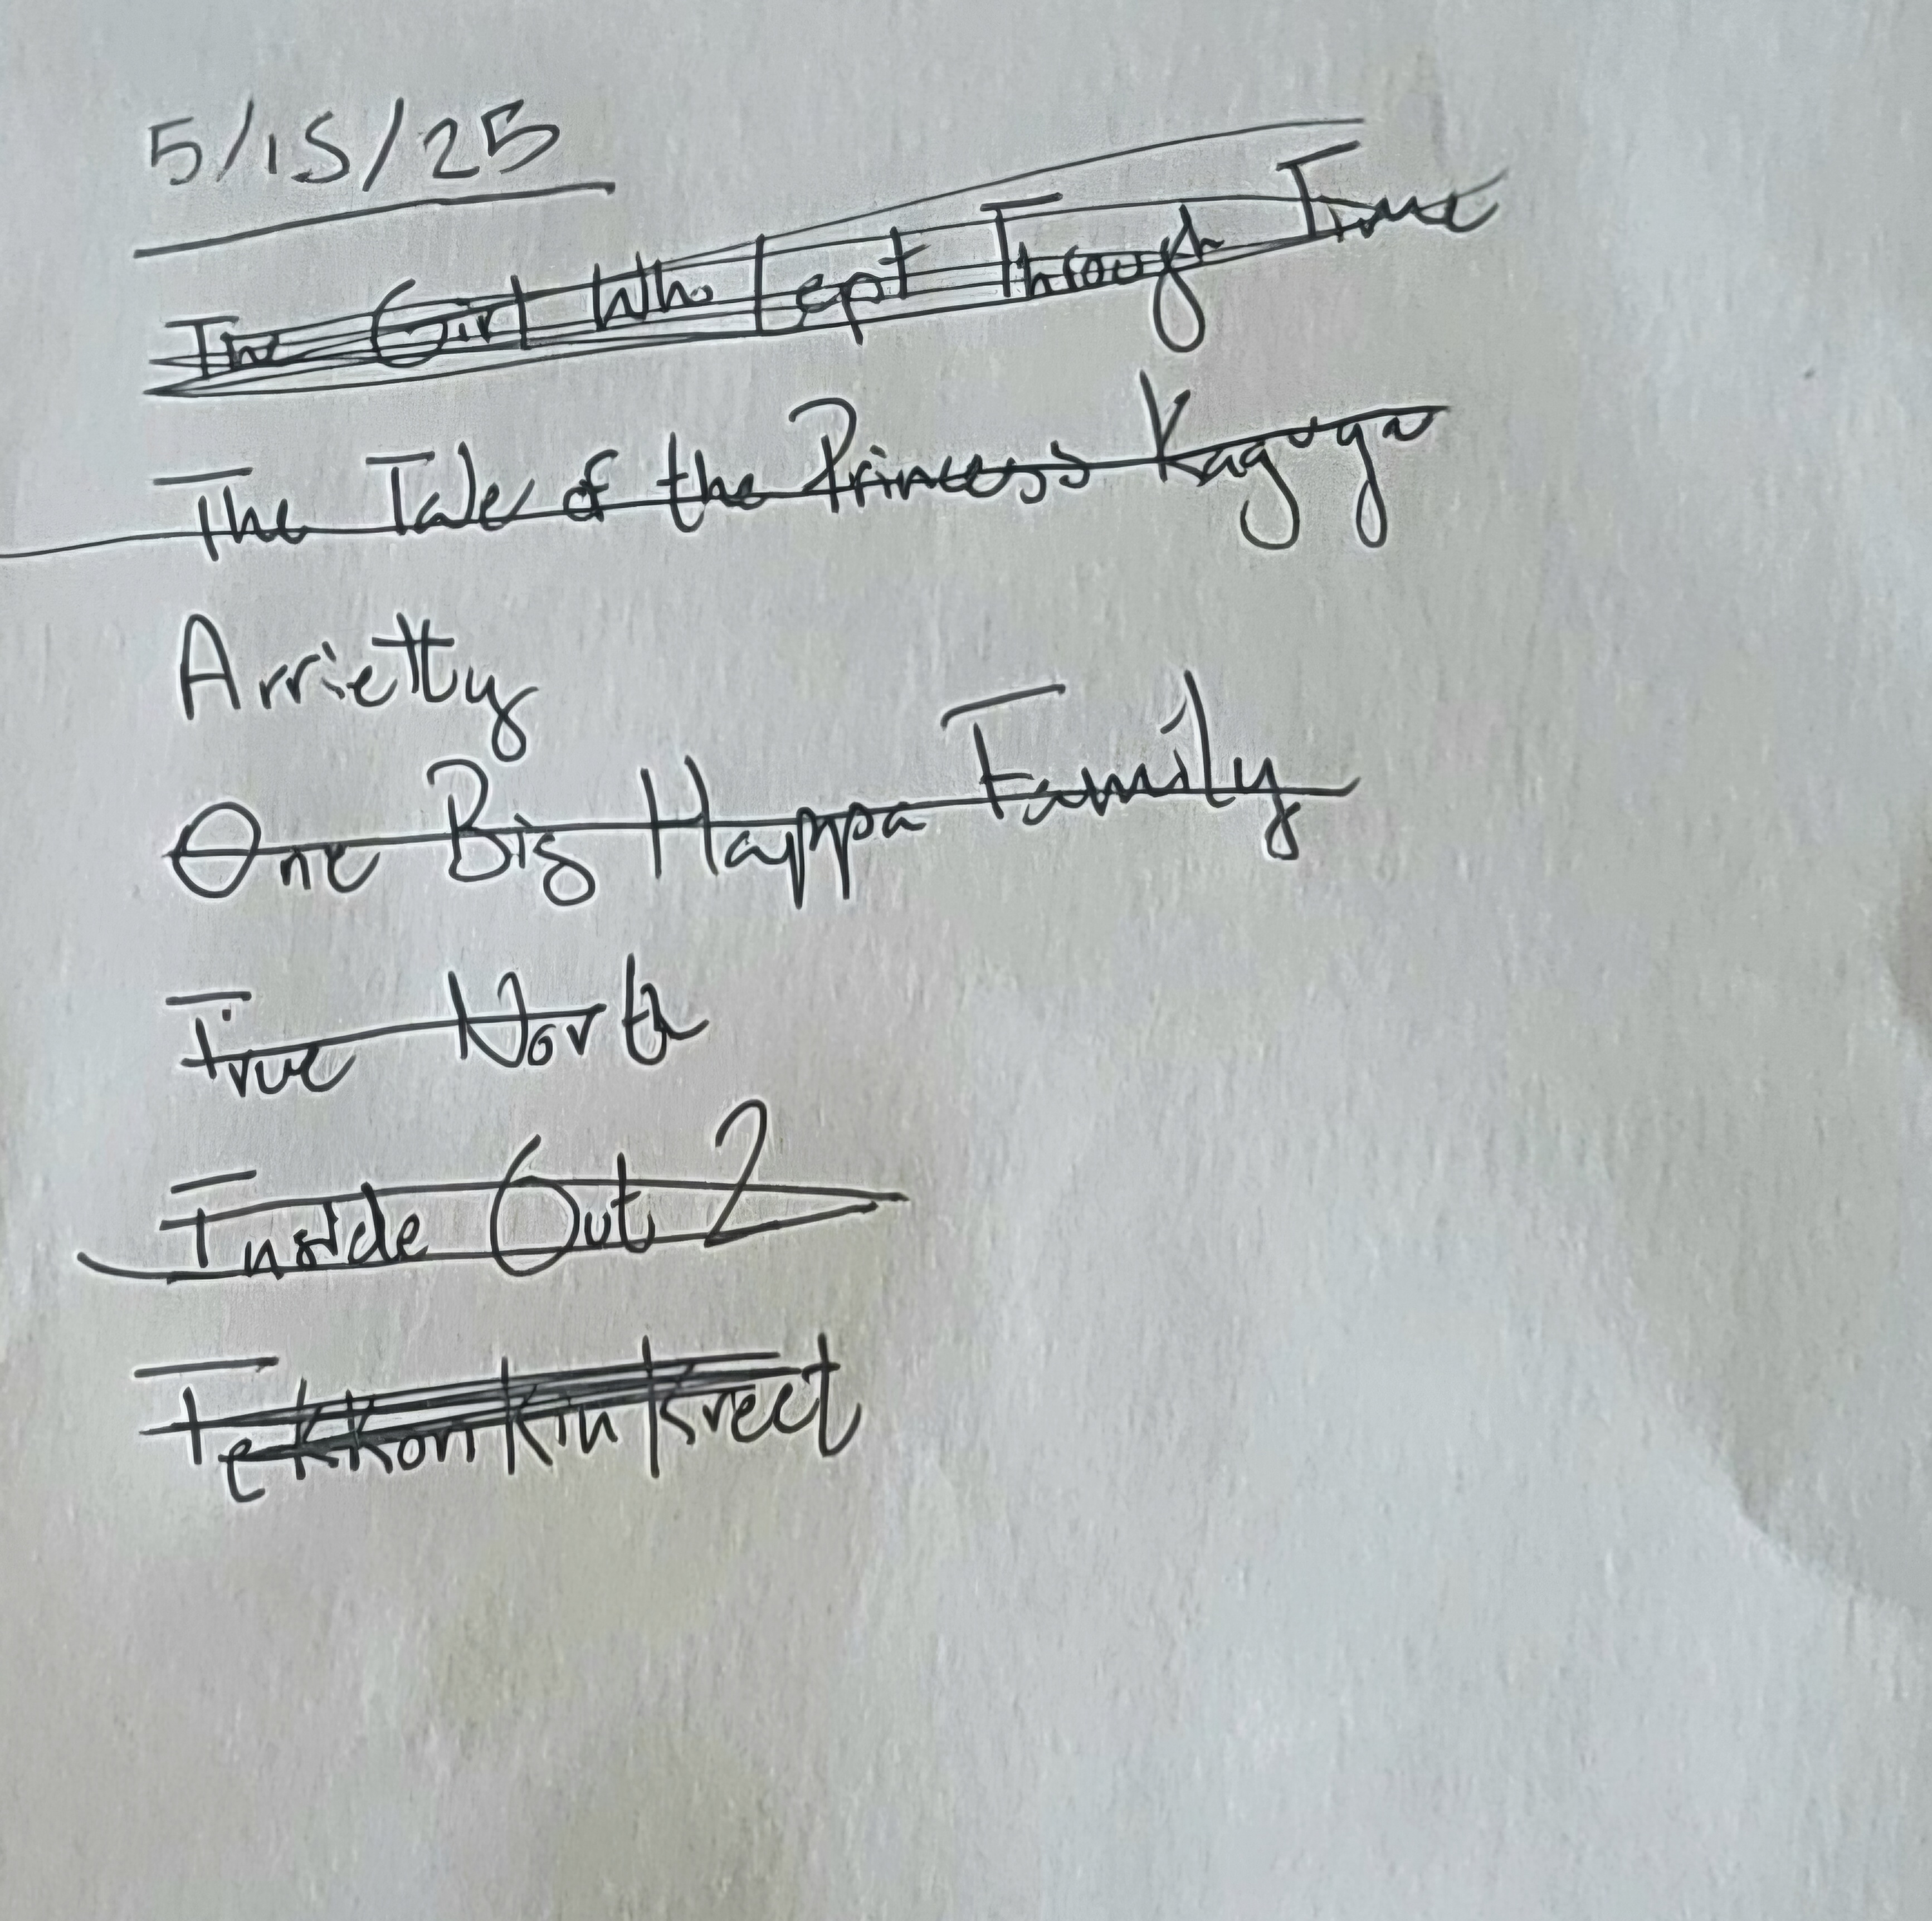 5/15/25
The Girl Who Lept Through Time
The Tale of the Princess Kaguya
Arrietty
One Big Happa Family
True North
Inside Out 2
Tekkon Kin Kreet